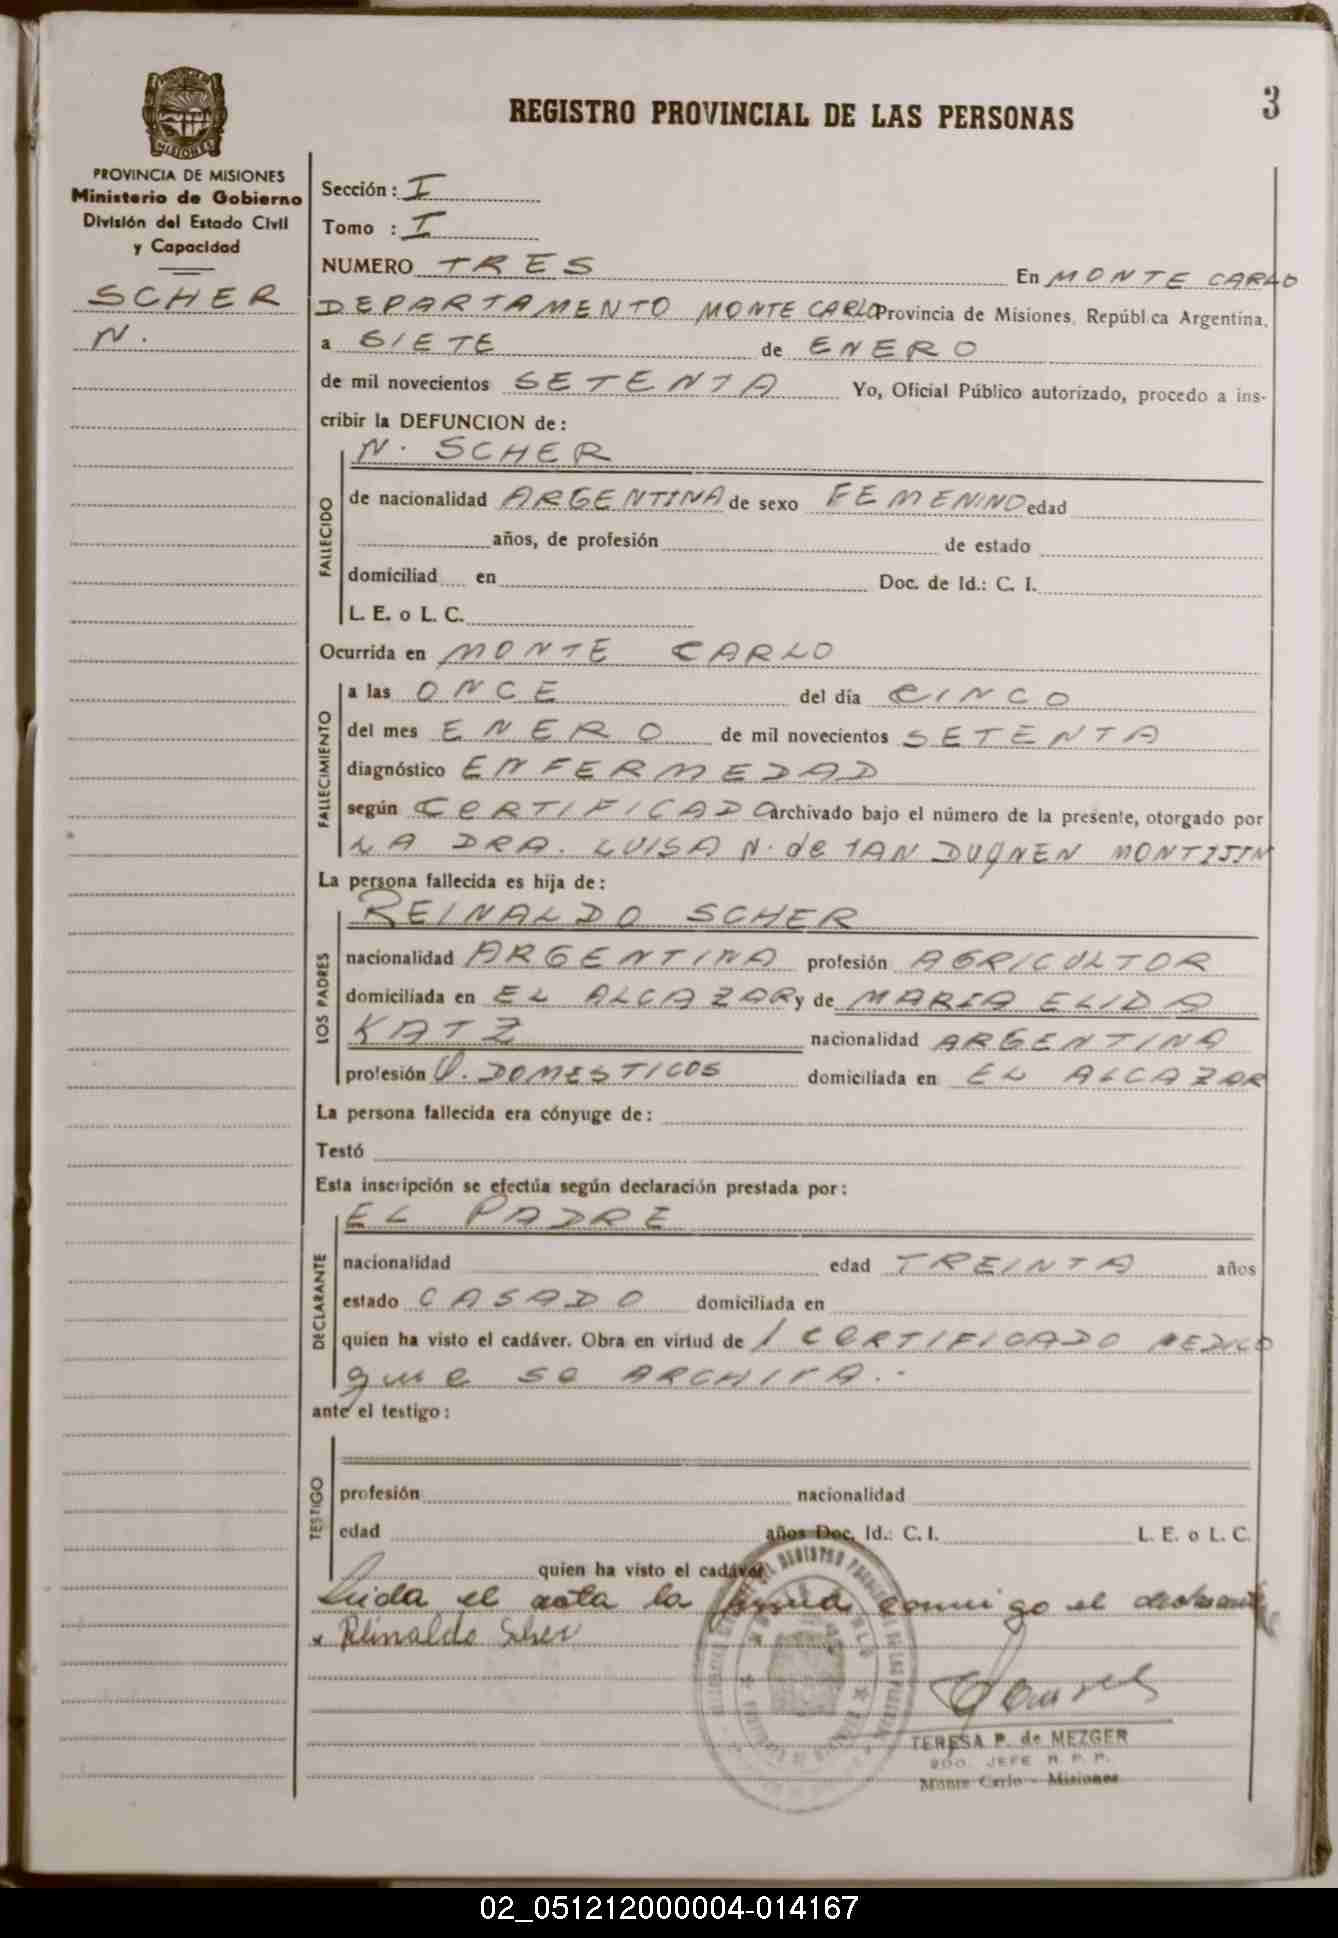 3
REGISTRO PROVINCIAL DE LAS PERSONAS
MISIONES
PROVINCIA DE MISIONES
Ministerio de Gobierno
División del Estado Civil
y Capacidad
SCHER
N.
Sección: I
Tomo : I
NUMERO TRES En MONTE CARLO
DEPARTAMENTO MONTE CARLO Provincia de Misiones, República Argentina,
a SIETE de ENERO
de mil novecientos SETENTA Yo, Oficial Público autorizado, procedo a ins-
cribir la DEFUNCION de:
N. SCHER
FALLECIDO
de nacionalidad ARGENTINA de sexo FEMENINO edad
años, de profesión de estado
domiciliad en Doc. de Id.: C. I.
L. E. o L. C.
Ocurrida en MONTE CARLO
FALLECIMIENTO
a las ONCE del día CINCO
del mes ENERO de mil novecientos SETENTA
diagnóstico ENFERMEDAD
según CERTIFICADO archivado bajo el número de la presente, otorgado por
LA DRA. LUISA N. de
La persona fallecida es hija de:
LOS PADRES
REINALDO SCHER
nacionalidad ARGENTINA profesión AGRICULTOR
domiciliada en EL ALCAZAR y de MARIA ELIDA
KATZ nacionalidad ARGENTINA
profesión Q. DOMESTICOS domiciliada en EL ALCAZAR
La persona fallecida era cónyuge de:
Testó
Esta inscripción se efectúa según declaración prestada por:
DECLARANTE
EL PADRE
nacionalidad edad TREINTA años
estado CASADO domiciliada en
quien ha visto el cadáver. Obra en virtud de 1 CERTIFICADO MEDICO
que se ARCHIVA.-
ante el testigo:
TESTIGO
profesión nacionalidad
edad años Doc. Id.: C. I. L. E. o L. C.
quien ha visto el cadáver
Leida el acta la firma conmigo el declarante
x Reinaldo Scher
TERESA P. de MEZGER
2DO. JEFE R. P. P.
Monte Carlo - Misiones
02_051212000004-014167